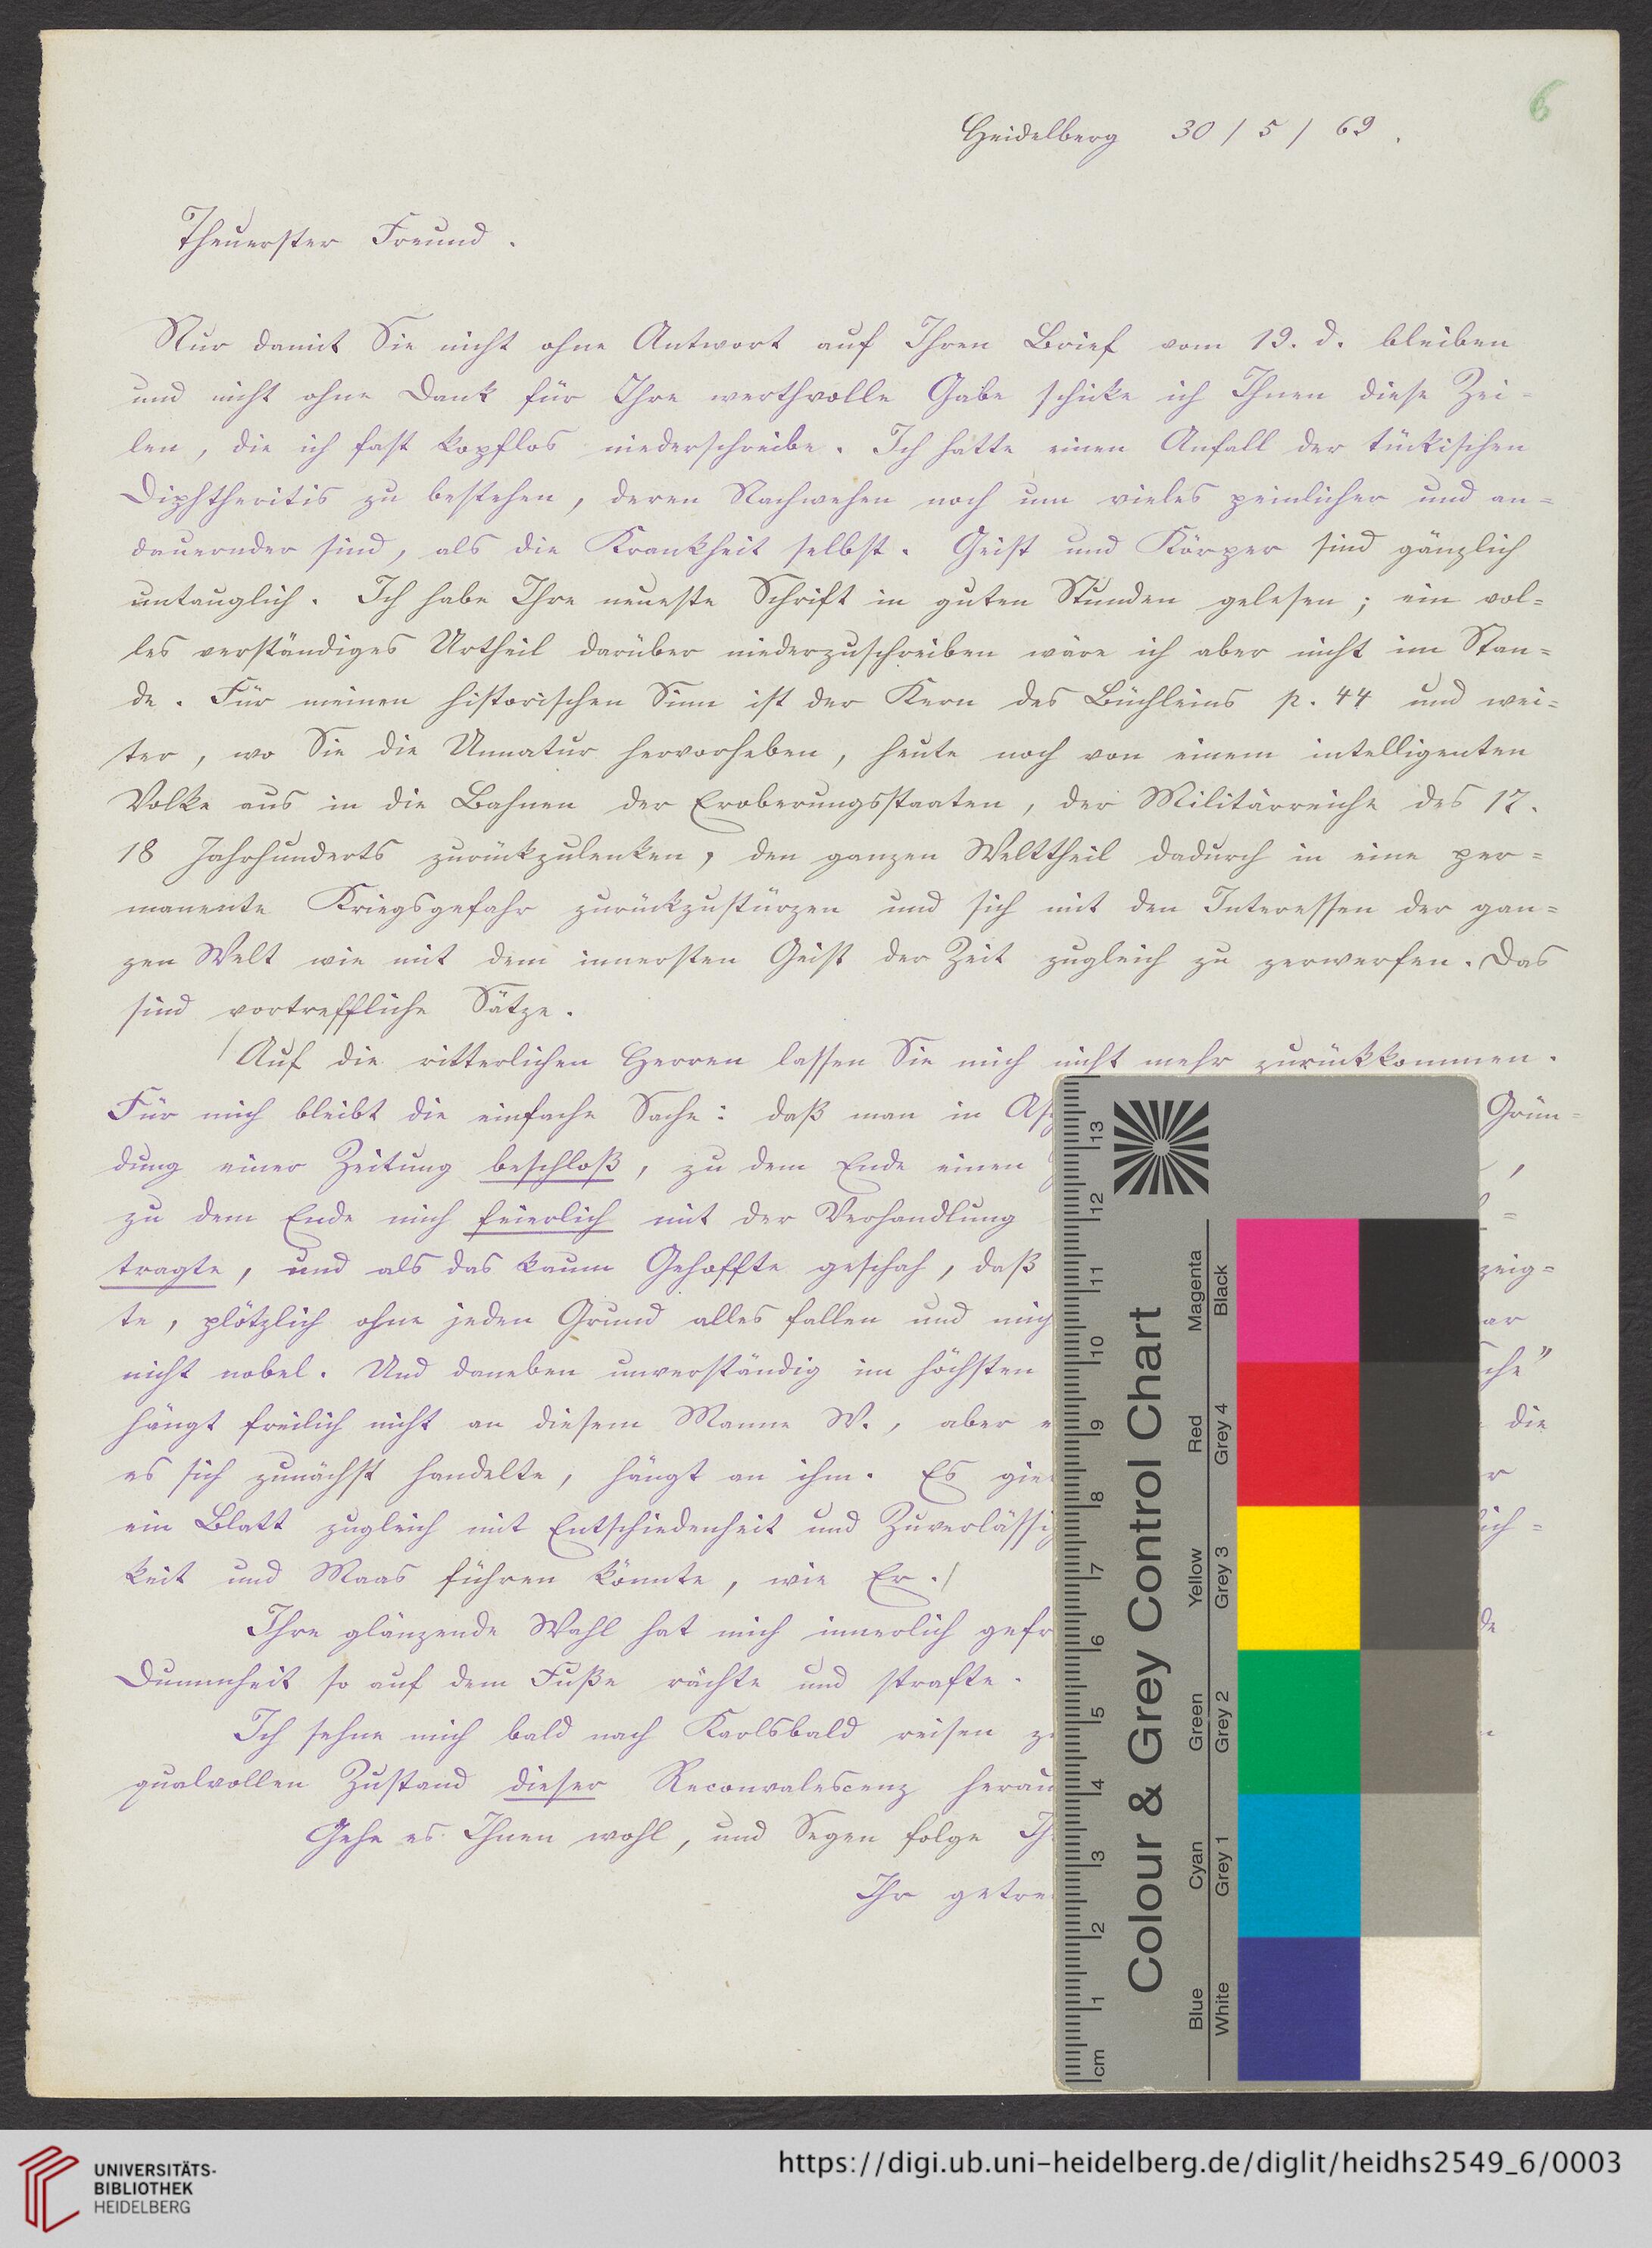 6
Heidelberg 30 / 5 / 69.
Theuerster Freund.
Nur damit Sie nicht ohne Antwort auf Ihren Brief vom 19. d. bleiben
und nicht ohne Dank für Ihre werthvolle Gabe schicke ich Ihnen diese Zei-
len, die ich fast kopflos niederschreibe. Ich hatte einen Anfall der tückischen
Diphtheritis zu bestehen, deren Nachwehen noch um vieles peinlicher und an-
dauernder sind, als die Krankheit selbst. Geist und Körper sind gänzlich
untauglich. Ich habe Ihre neueste Schrift in guten Stunden gelesen; ein vol-
les verständiges Urtheil darüber niederzuschreiben wäre ich aber nicht im Stan-
de. Für meinen historischen Sinn ist der Kern des Büchleins p. 44 und wei-
ter, wo Sie die Unnatur hervorheben, heute noch von einem intelligenten
Volke aus in die Bahnen der Eroberungsstaaten, der Militärreiche des 17.
18 Jahrhunderts zurückzulenken, den ganzen Welttheil dadurch in eine per-
manente Kriegsgefahr zurückzustürzen und sich mit den Interessen der gan-
zen Welt wie mit dem innersten Geist der Zeit zugleich zu zerwerfen. Das
sind vortreffliche Sätze.
/Auf die ritterlichen Herren lassen Sie mich nicht mehr zurückkommen.
Für mich bleibt die einfache Sache: daß man in Grün-
dung einer Zeitung beschloß, zu dem Ende einen ,
zu dem Ende mich feierlich mit der Verhandlung
tragte, und als das kaum Gehoffte geschah, daß zeig-
te, plötzlich ohne jeden Grund alles fallen und mich ar
nicht nobel. Und daneben unverständig im höchsten che"
hängt freilich nicht an diesem Manne W., aber die
es sich zunächst handelte, hängt an ihm. Es
ein Blatt zugleich mit Entschiedenheit und Zuverlässi lich-
keit und Maas führen könnte, wie Er./
Ihre glänzende Wahl hat mich innerlich gefr de
Dummheit so auf dem Fuße rächte und strafte.
Ich sehne mich bald nach Karlsbald reisen
qualvollen Zustand dieser Reconvalescenz herau
Gehe es Ihnen wohl, und Segen folge Ih
Ihr getre
Colour & Grey Control Chart
Magenta Black
Red Grey 4
Yellow Grey 3
Green Grey 2
Cyan Grey 1
Blue White
13
12
11
10
9
8
7
6
5
4
3
2
1
cm
UNIVERSITÄTS-
BIBLIOTHEK
HEIDELBERG
https://digi.ub.uni-heidelberg.de/diglit/heidhs2549_6/0003